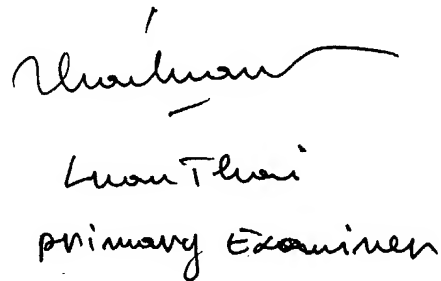 Luan Thai
primary Examiner